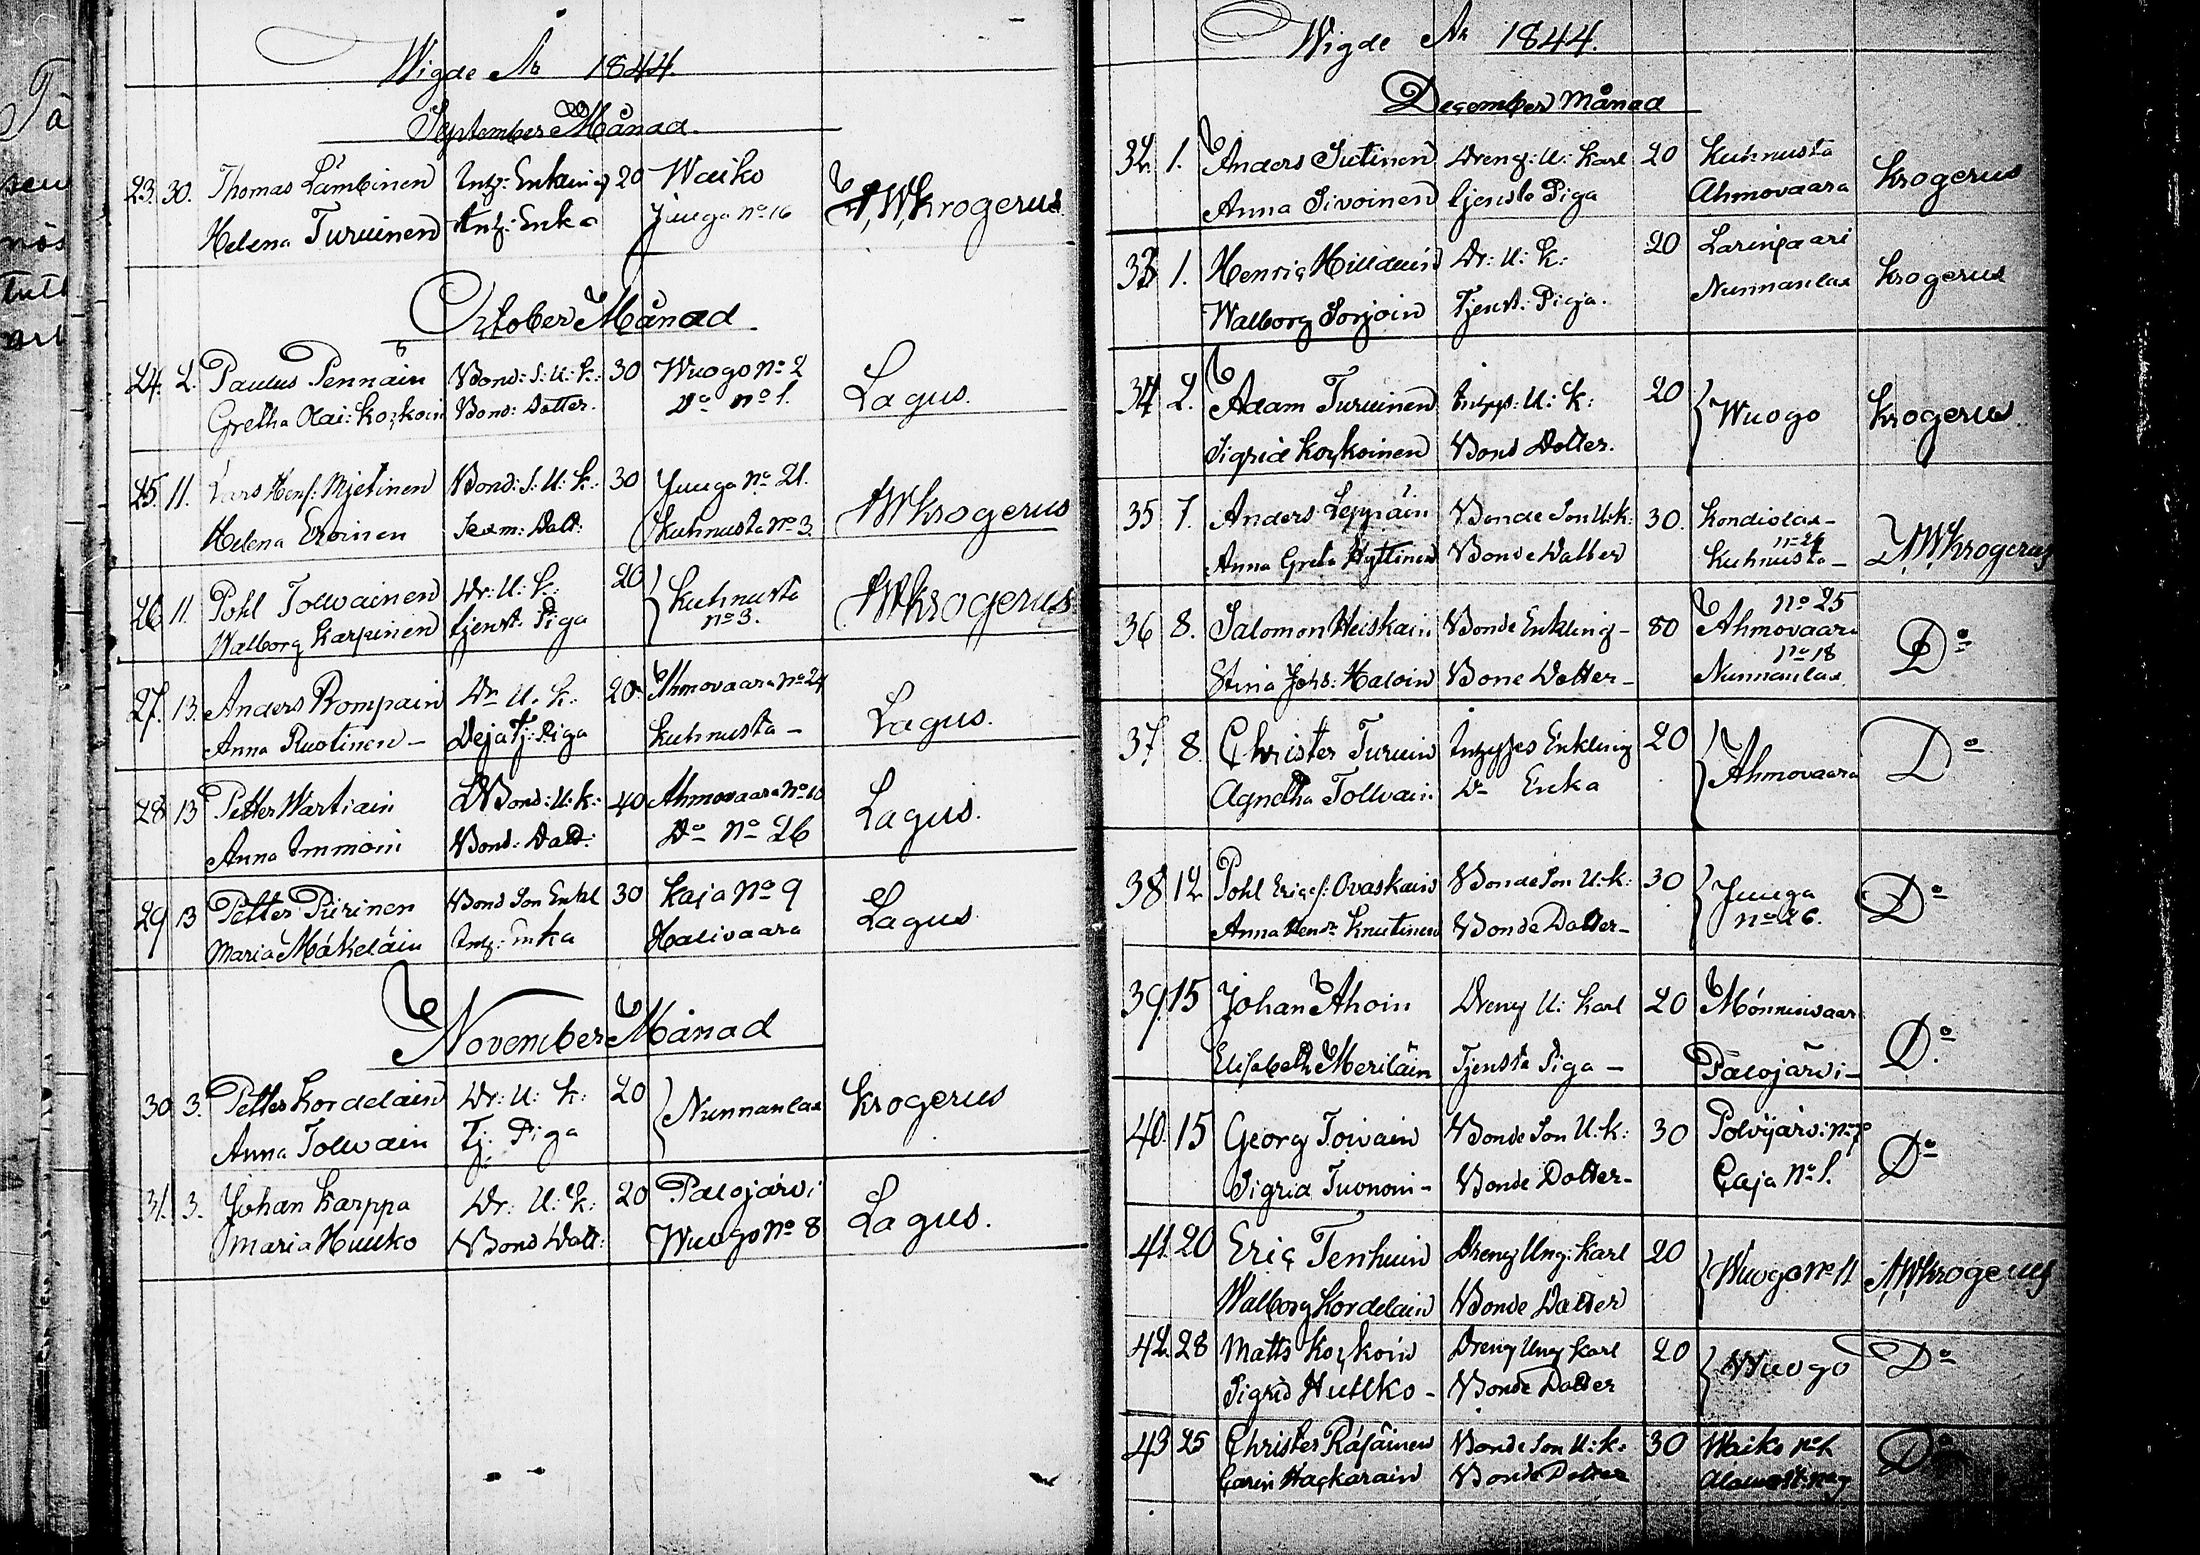 Wigde År 1844.
September Månad.
23. 30. Thomas Lämbinen Inhy: Enkling 20 Waiko A,W,Krogerus
Helena Turuinen Inhy: Enka Juuga No 16
October Månad
24. 2. Paulus Pennäin Bond: S: U: K: 30 Wuogo No 2 Lagus.
Gretha Olai: Koçkoin Bond: Dotter. Do No 1.
25. 11. Lars Henr: Mjetinen Bond: S: U: K: 30 Juuga No 21. AWKrogerus
Helena Eroinen Sexm: Dott: Kuhnusta No 3.
26. 11. Pohl Tolwainen Dr: U: K: 20 Kuhnusta AWKrogerus
Walborg Karpuinen tjenst. Piga No 3.
27. 13. Anders Rompain Dr U: K: 20. Ahmovaara No 24 Lagus.
Anna Ruotinen – Deja Tj: Piga Kuhnusta –
28 13 Petter Wartiain Bond: U: K: 40 Ahmovaara No 10 Lagus.
Anna Immoin Bond: Dott: Do No 26
29 13 Petter Piirinen Bond Son Enkl 30 Kaja No 9 Lagus
Maria Mäkeläin Inhy: Enka Halivaara
November Månad
30 3. Petter Kordelain Dr: U: K: 20 Nunnanlax Krogerus
Anna Tolwain Tj: Piga
31. 3. Johan Karppa Dr: U: K: 20 Palojärvi Lagus.
Maria Huuko Bond Dott: Wuogo No 8
Wigde År 1844.
December Månad
32. 1. Anders Sutinen Dreng: U: Karl 20 Kuhnusta Krogerus
Anna Sivoinen tjenste Piga Ahmovaara
33 1. Henriç Hilduin Dr: U: K: 20 Larinsaari Krogerus
Walborg Sorjoin Tjenst: Piga. Nunnanlax
34 2. Adam Turuinen Inhys: U: K: 20 Wuogo Krogerus.
Sigrid Koçkoinen Bond Dotter.
35 7. Anders Leppäin Bonde Son U:K: 30. Kondiolax – A,W,Krogerus
Anna Greta Hyttinen Bonde Dotter No 24 Kuhnusta –
36 8. Salomon Heiskain Bonde Enkling – 80 No 25 Ahmovaara Do
Stina Johs: Haloin Bone Dotter – No 18 Nunnanlax
37. 8. Christer Turuin Inhyses Enkling 20 Ahmovaara Do
Agnetha Tolwain Do Enka
38 12 Pohl Erics: Ovaskain Bonde Son U:K: 30 Juuga Do
Anna Hendr Knutinen Bonde Dotter – No 26.
39. 15 Johan Ahoin Dreng U: Karl 20 Mönnisvaar Do.
Elisabeth Meriläin Tjenste Piga – Palojärvi –
40. 15 Georg Toivain Bonde Son U:K: 30 Polvijärvi No 7 Do
Sigrid Tuononi – Bonde Dotter – Caja No 1.
41. 20 Eriç Tenhuin Dreng Ung: Karl 20 Wuogo No 11 A,W,Krogerus
Walborg Kordelain Bonde Dotter
42. 28 Matts Koçkoin Dreng Ung Karl 20 Wuogo Do
Sigrid Huttko – Bonde Dotter
43 25 Christer Räsäinen Bonde Son U:K: 30 Waiko Do
Carin Haçkarain Bonde Dotter